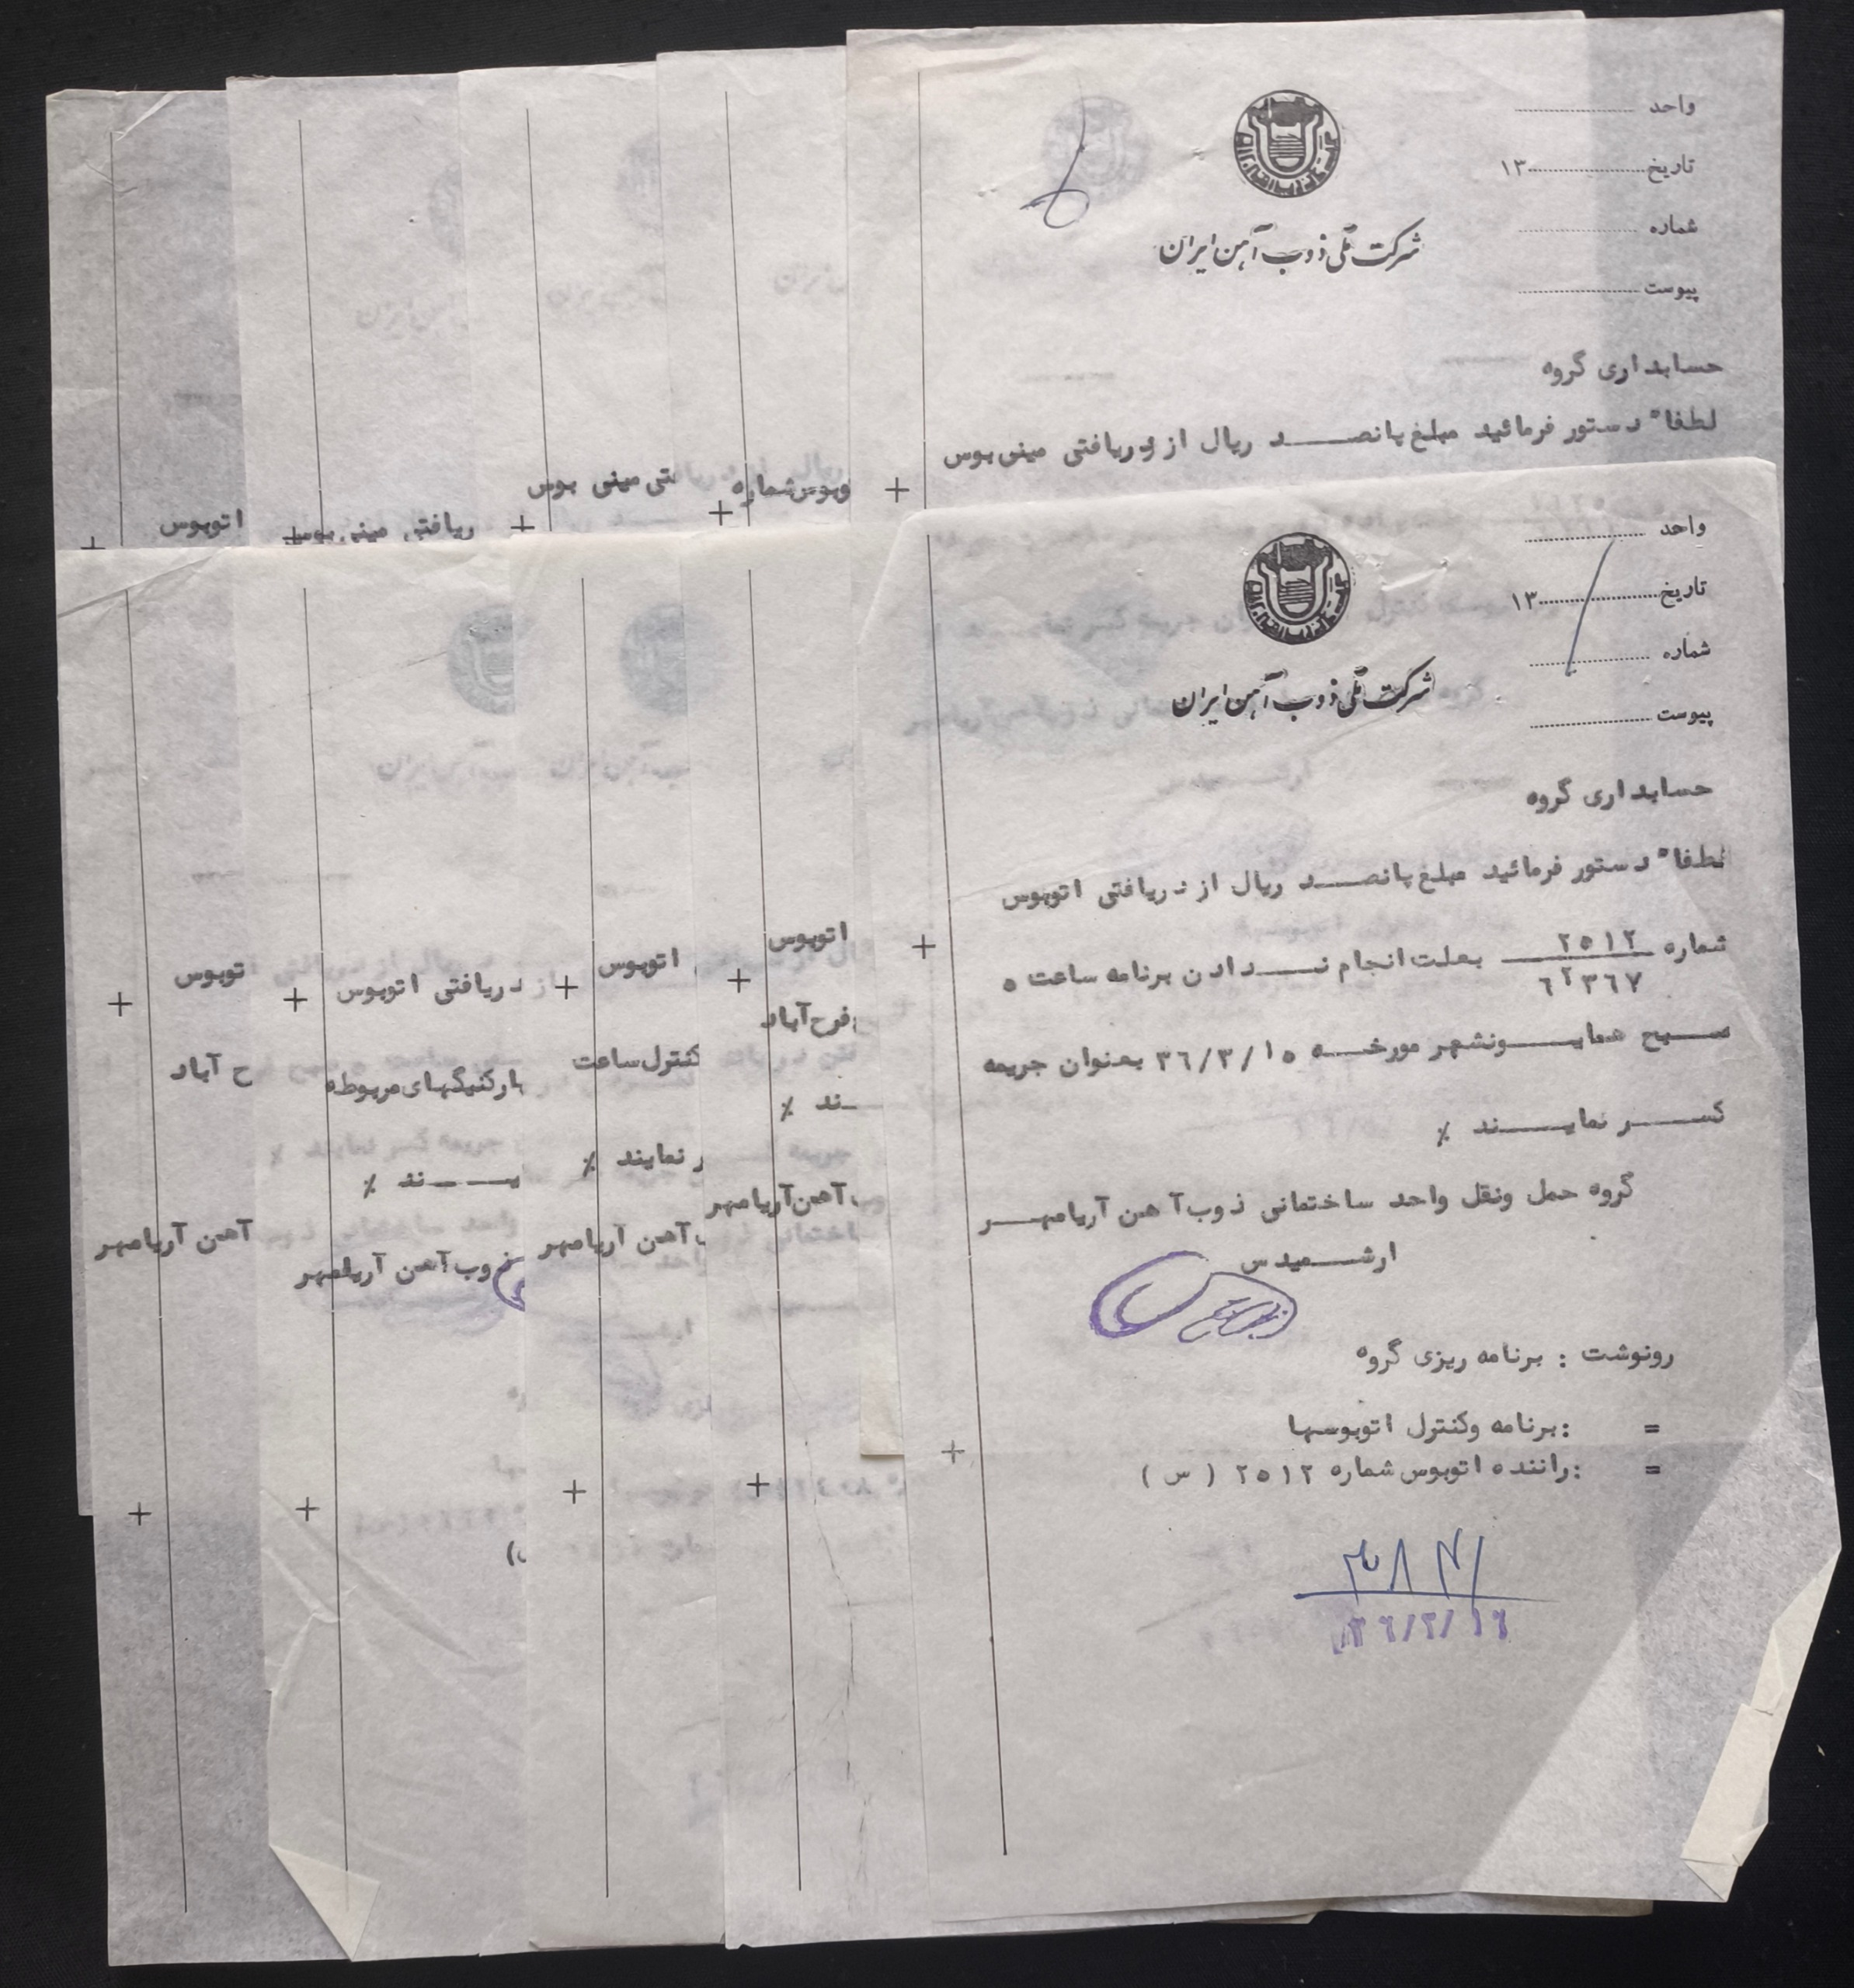 واحد
تاریخ ۱۳
شماره
پیوست
شرکت ملی ذوب آهن ایران
حسابداری گروه
لطفا" دستور فرمائید مبلغ پانصد ریال از دریافتی مینی بوس
اتوبوس
ریافتی مینی بوس
تی مینی بوس
وبوس شماره
واحد
تاریخ ۱۳
شماره
پیوست
شرکت ملی ذوب آهن ایران
حسابداری گروه
لطفا" دستور فرمائید مبلغ پانصد ریال از دریافتی اتوبوس
شماره ۲۵۱۲ بعلت انجام ندادن برنامه ساعت ۵
صبح همایونشهر مورخه ۳۶/۳/۱۵ بعنوان جریمه
کسر نمایند ٪
گروه حمل ونقل واحد ساختمانی ذوب آهن آریامهر
ارشمیدس
رونوشت : برنامه ریزی گروه
= : برنامه وکنترل اتوبوسها
= : راننده اتوبوس شماره ۲۵۱۲ ( س )
۳۶/۳/۱۶
اتوبوس
فرح آباد
ند ٪
آهن آریامهر
اتوبوس
کنترل ساعت
ر نمایند ٪
آهن آریامهر
دریافتی اتوبوس
پارکینگهای مربوطه
یند ٪
ذوب آهن آریامهر
توبوس
ح آباد
آهن آریامهر